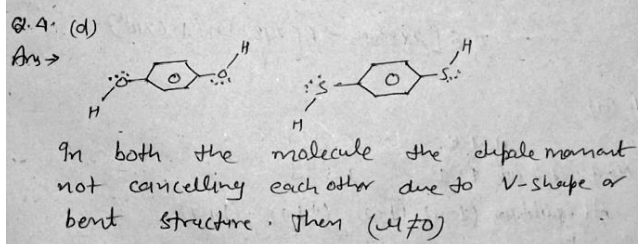 Q.4. (d)
Ans →
H O O H
H S S H
In both the molecule the dipole momant
not cancelling each other due to V-shape or
bent structure. Then (μ≠0)